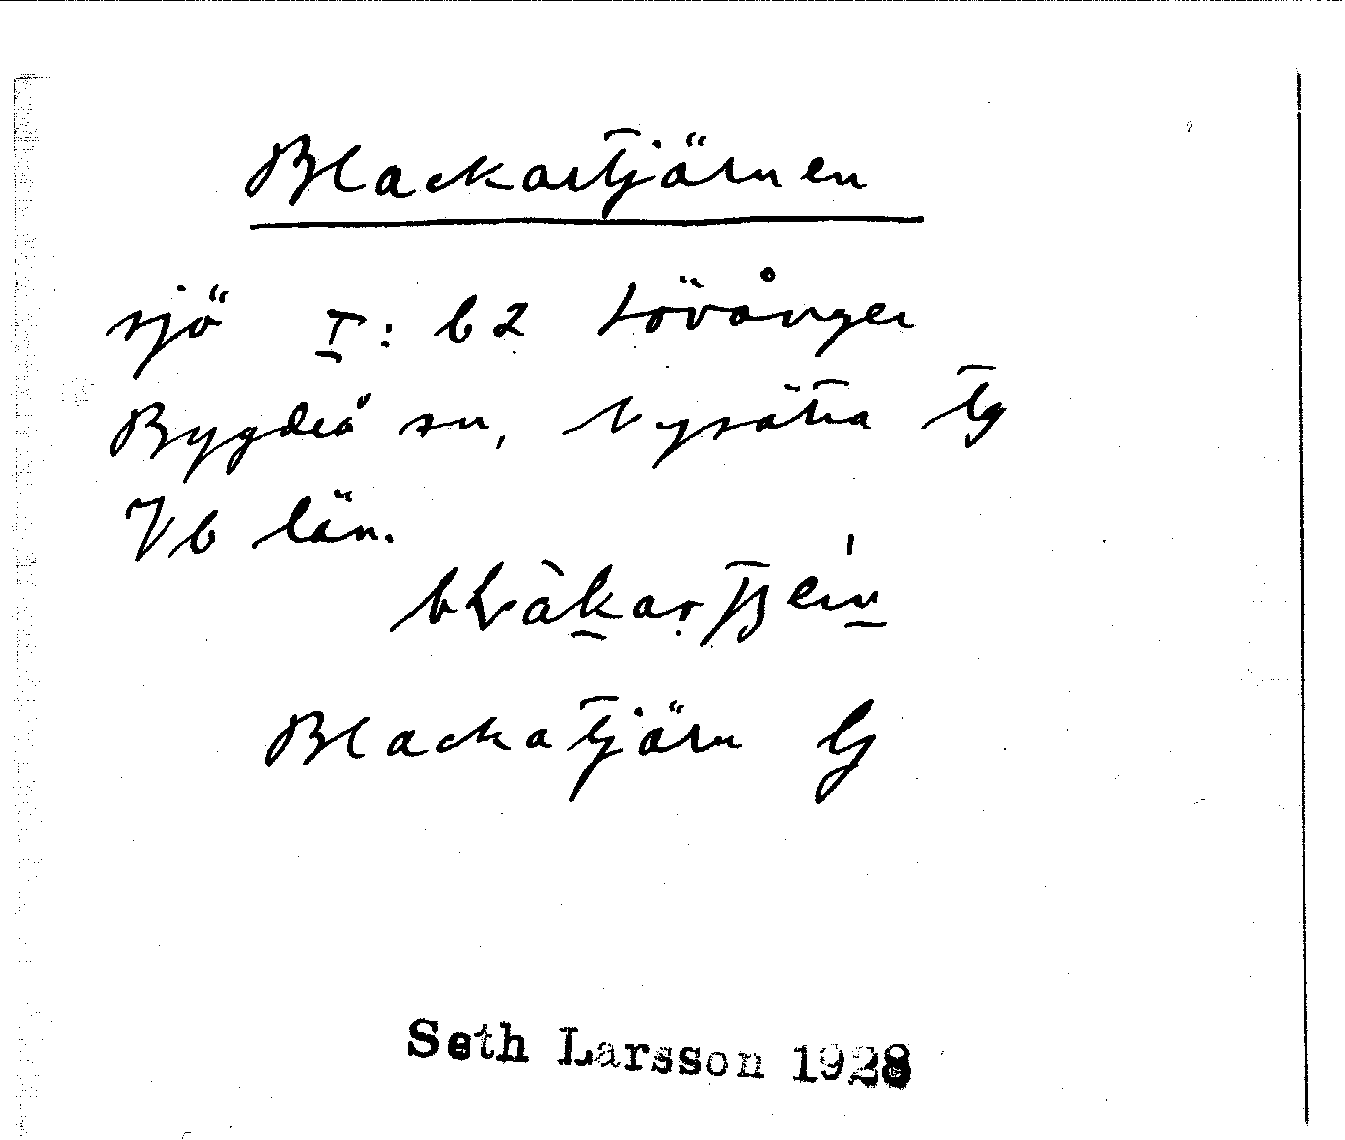 Blackartjärnen
sjö I: b2 Lövånger
Bygdeå sn, Nysätra tg
Vb län.
Blackatjärn G
Seth Larsson 1928